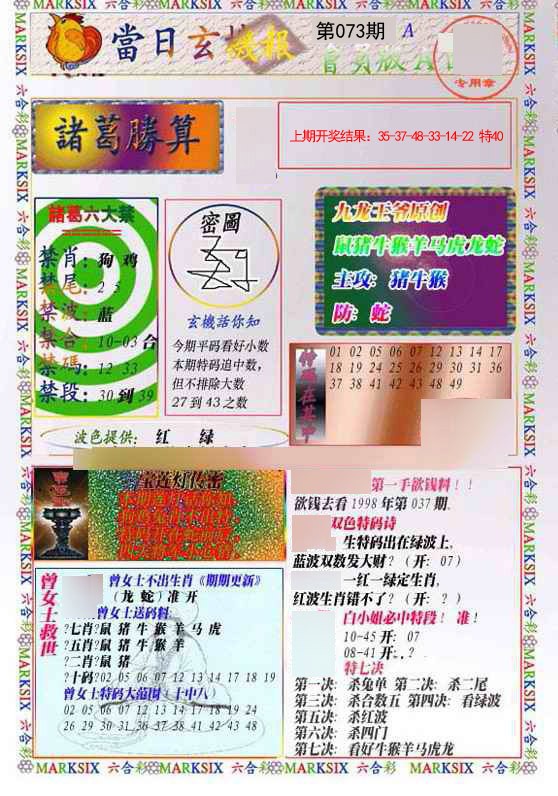 MARKSIX 六合彩 MARKSIX 六合彩 MARKSIX 六合彩 MARKSIX 六合彩
當日玄機报
第073期
A
專用章
諸葛勝算
上期开奖结果：35-37-48-33-14-22 特40
諸葛六大禁
禁肖：狗 鸡
禁尾：2 5
禁波：蓝
禁合：10-03合
禁碼：12 33
禁段：30到39
密圖
玄機話你知
今期平码看好小数
本期特码追中数，
但不排除大数
27到43之数
九龙王爷原创
鼠猪牛猴羊马虎龙蛇
主攻：猪牛猴
防：蛇
01 02 05 06 07 12 13 14 17
18 19 24 25 26 29 30 31 36
37 38 41 42 43 48 49
波色提供： 红 绿
宝莲灯传密
第一手欲钱料！！
欲钱去看1998年第037期,
双色特码诗
生特码出在绿波上,
蓝波双数发大财？（开：07）
一红一绿定生肖,
红波生肖错不了？（开：？）
白小姐必中特段！ 准！
10-45开：07
08-41开：,？
特七决
第一决：杀兔单 第二决：杀二尾
第三决：杀合数五 第四决：看绿波
第五决：杀红波
第六决：杀四门
第七决：看好牛猴羊马虎龙
曾女士救世
曾女士不出生肖《期期更新》
（龙 蛇）准 开
曾女士送码料
?七肖?鼠 猪 牛 猴 羊 马 虎
?五肖?鼠 猪 牛 猴 羊
?二肖?鼠 猪
?十码?02 05 06 07 12 13 14 17 18 19
曾女士特码大范围（十中八）
02 05 06 07 12 13 14 17 18 19 24
26 29 30 31 36 37 38 41 42 43 48
MARKSIX 六合彩 MARKSIX 六合彩 MARKSIX 六合彩 MARKSIX 六合彩